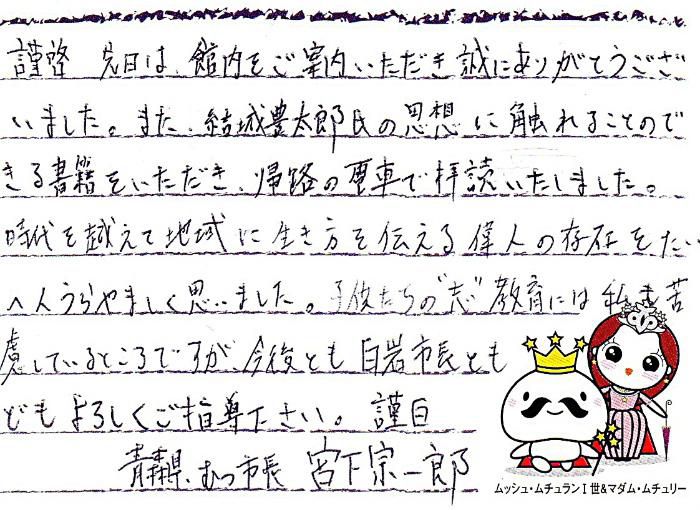 謹啓 先日は、館内をご案内いただき誠にありがとうござ
いました。また、結城豊太郎氏の思想に触れることので
きる書籍をいただき、帰路の電車で拝読いたしました。
時代を越えて地域に生き方を伝える偉人の存在をたい
へんうらやましく思いました。子供たちの“志”教育には私も苦
慮しているところですが、今後とも白岩市長とも
どもよろしくご指導下さい。 謹白
青森県、むつ市長 宮下宗一郎
ムッシュ・ムチュランⅠ世&マダム・ムチュリー